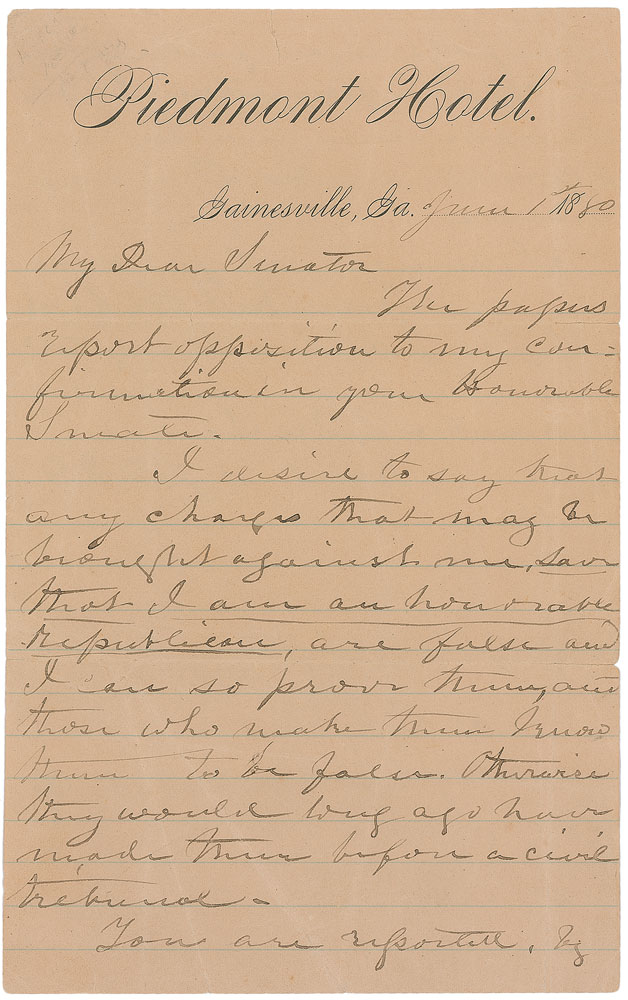 Piedmont Hotel.
Gainesville, Ga. June 1st 1880
My Dear Senator
The papers
report opposition to my con=
firmation in your Honorable
Senate.
I desire to say that
any charges that may be
brought against me, save
that I am an honorable
republican, are false and
I can so prove them, and
those who make them know
them to be false. Otherwise
they would long ago have
made them before a civil
tribunal -
You are reported, by